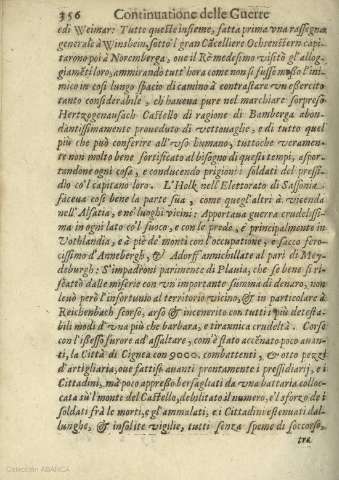 356 Continuatione delle Guerre
e di Weimar: Tutto questo insieme, fatta prima vna rassegna
generale à Winsheim, sotto'l gran Cãcelliere Ochrenstern capi-
tarono poi à Noremberga, oue il Rè medesimo visitò gl'allog-
giamẽti loro, ammirando tutt'hora come non si fusse mosso l'ini-
mico in così lungo spacio di camino à contrastare vn esercito
tanto considerabile, chi haueua pure nel marchiare sorpreso
Hertzogenausach Castello di ragione di Bamberga abon-
dantissimamente proueduto di vettouaglie, e di tutto quel
più che può conferire all'vso humano, tuttoche veramen-
te non molto bene fortificato al bisogno di questi tempi, aspor-
tandone ogni cosa, e conducendo prigioni i soldati del presi-
dio co'l capitano loro. L'Holk nell'Elettorato di Sassonia
faceua così bene la parte sua, come quegl'altri à vicenda
nell'Alsatia, e ne' luoghi vicini: Apportaua guerra crudelissi-
ma in ogni lato co'l fuoco, e con le prede, e principalmente in
Vothlandia, e à piè de' monti con l'occupatione, e sacco fero-
cissimo d'Annebergh, & Adorff annichillate al pari di Mey-
deburgh: S'impadronì parimente di Plauia, che se bene si ri-
scattò dalle miserie con vn importante summa di denaro, non
leuò però l'infortunio al territorio vicino, & in particolare à
Reichenbach scorso, arso & incenerito con tutti i più detesta-
bili modi d'vna più che barbara, e tirannica crudeltà. Corso
con l'istesso furore ad assaltare, com'è stato accẽnato poco auan-
ti, la Città di Cignea con 9000. combattenti, & otto pezzi
d'artigliaria, oue fattisi auanti prontamente i pressidiarij, e i
Cittadini, ma poco appresso bersagliati da vna battaria colloc-
cata sù'l monte del Castello, debilitato il numero, e'l sforzo de i
soldati frà le morti, e gl'ammalati, e i Cittadini estenuati dal-
lunghe, & insolite vigilie, tutti senza speme di soccorso,
Colección ABANCA